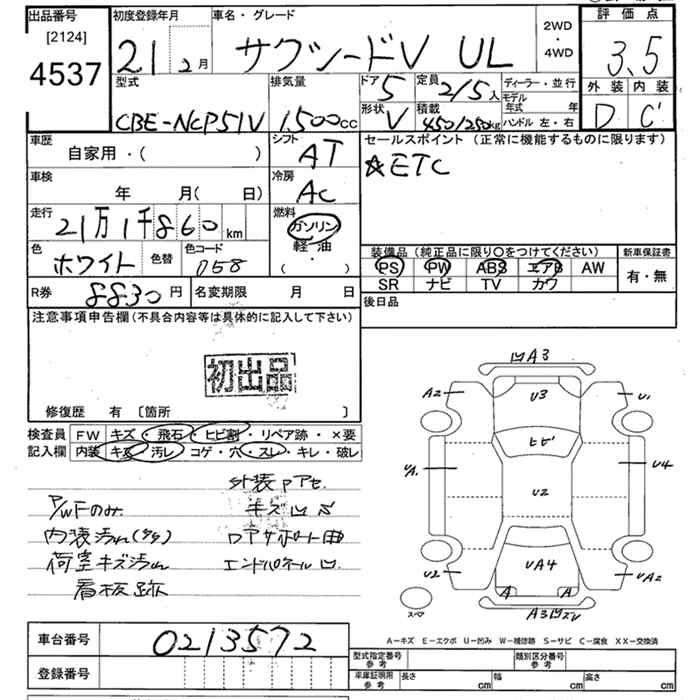 出品番号 [2124] 4537
初度登録年月 21 2月
車名・グレード サクシードV UL
2WD・4WD
評価点 3.5
外装 D 内装 C
型式 CBE-NCP51V
排気量 1,500cc
ドア 5 定員 2/5人
形状 V 積載 450/250kg
ディーラー・並行
モデル年式 年
ハンドル 左・右
車歴 自家用・( )
シフト AT
セールスポイント (正常に機能するものに限ります)
☆ETC
車検 年 月( 日)
冷房 AC
走行 21万1千860 km
燃料 ガソリン・軽油・( )
色 ホワイト 色替 色コード 058
装備品 (純正品に限り○をつけてください) 新車保証書
PS PW ABS エアB AW
SR ナビ TV カワ
有・無
R券 8830円 名変期限 月 日
後日品
注意事項申告欄(不具合内容等は具体的に記入して下さい)
初出品
修復歴 有 〔箇所 〕
検査員記入欄 FW キズ・飛石・ヒビ割・リペア跡・×要
内装 キズ・汚レ・コゲ・穴・スレ・キレ・破レ
外装
P/WFのみ キズ凹
内装汚れ
荷室キズ汚れ エンドパネル凹
看板跡
凹A3
A2 U3 U1
ヒビ
U1 U4
U2
U2 UA4 UA2
A A
スペア
A-キズ E-エクボ U-凹み W-補修跡 S-サビ C-腐食 XX-交換済
車台番号 0213572
登録番号
型式指定番号 参考 類別区分番号 参考
車庫証明用 参考 長さ cm 幅 cm 高さ cm